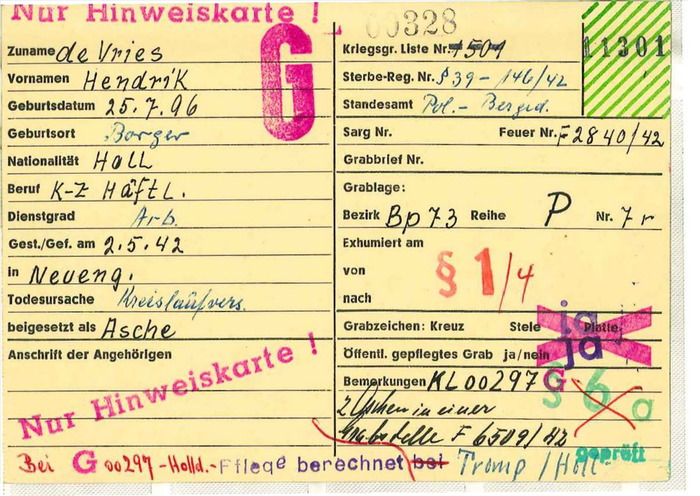 Nur Hinweiskarte !
G
L 00328
11301
Zuname de Vries
Vornamen Hendrik
Geburtsdatum 25.7.96
Geburtsort Borger
Nationalität Holl
Beruf K-Z Häftl.
Dienstgrad Arb.
Gest./Gef. am 2.5.42
in Neueng.
Todesursache Kreislaufvers.
beigesetzt als Asche
Anschrift der Angehörigen
Nur Hinweiskarte !
Kriegsgr. Liste Nr. 7501
Sterbe-Reg. Nr. § 39 - 146/42
Standesamt Pol.- Berged.
Sarg Nr. Feuer Nr. F 2840/42
Grabbrief Nr.
Grablage:
Bezirk Bp 73 Reihe P Nr. 7 r
Exhumiert am
von
nach
§ 1/4
Grabzeichen: Kreuz Stele Platte
ja
Öffentl. gepflegtes Grab ja/nein
ja
Bemerkungen KL 00297 G
§ 6 a
2 Aschen in einer
Grabstelle F 6509/42
geprüft
Bei G 00297 -Holld.- Pflege berechnet bei Tromp / Holl.